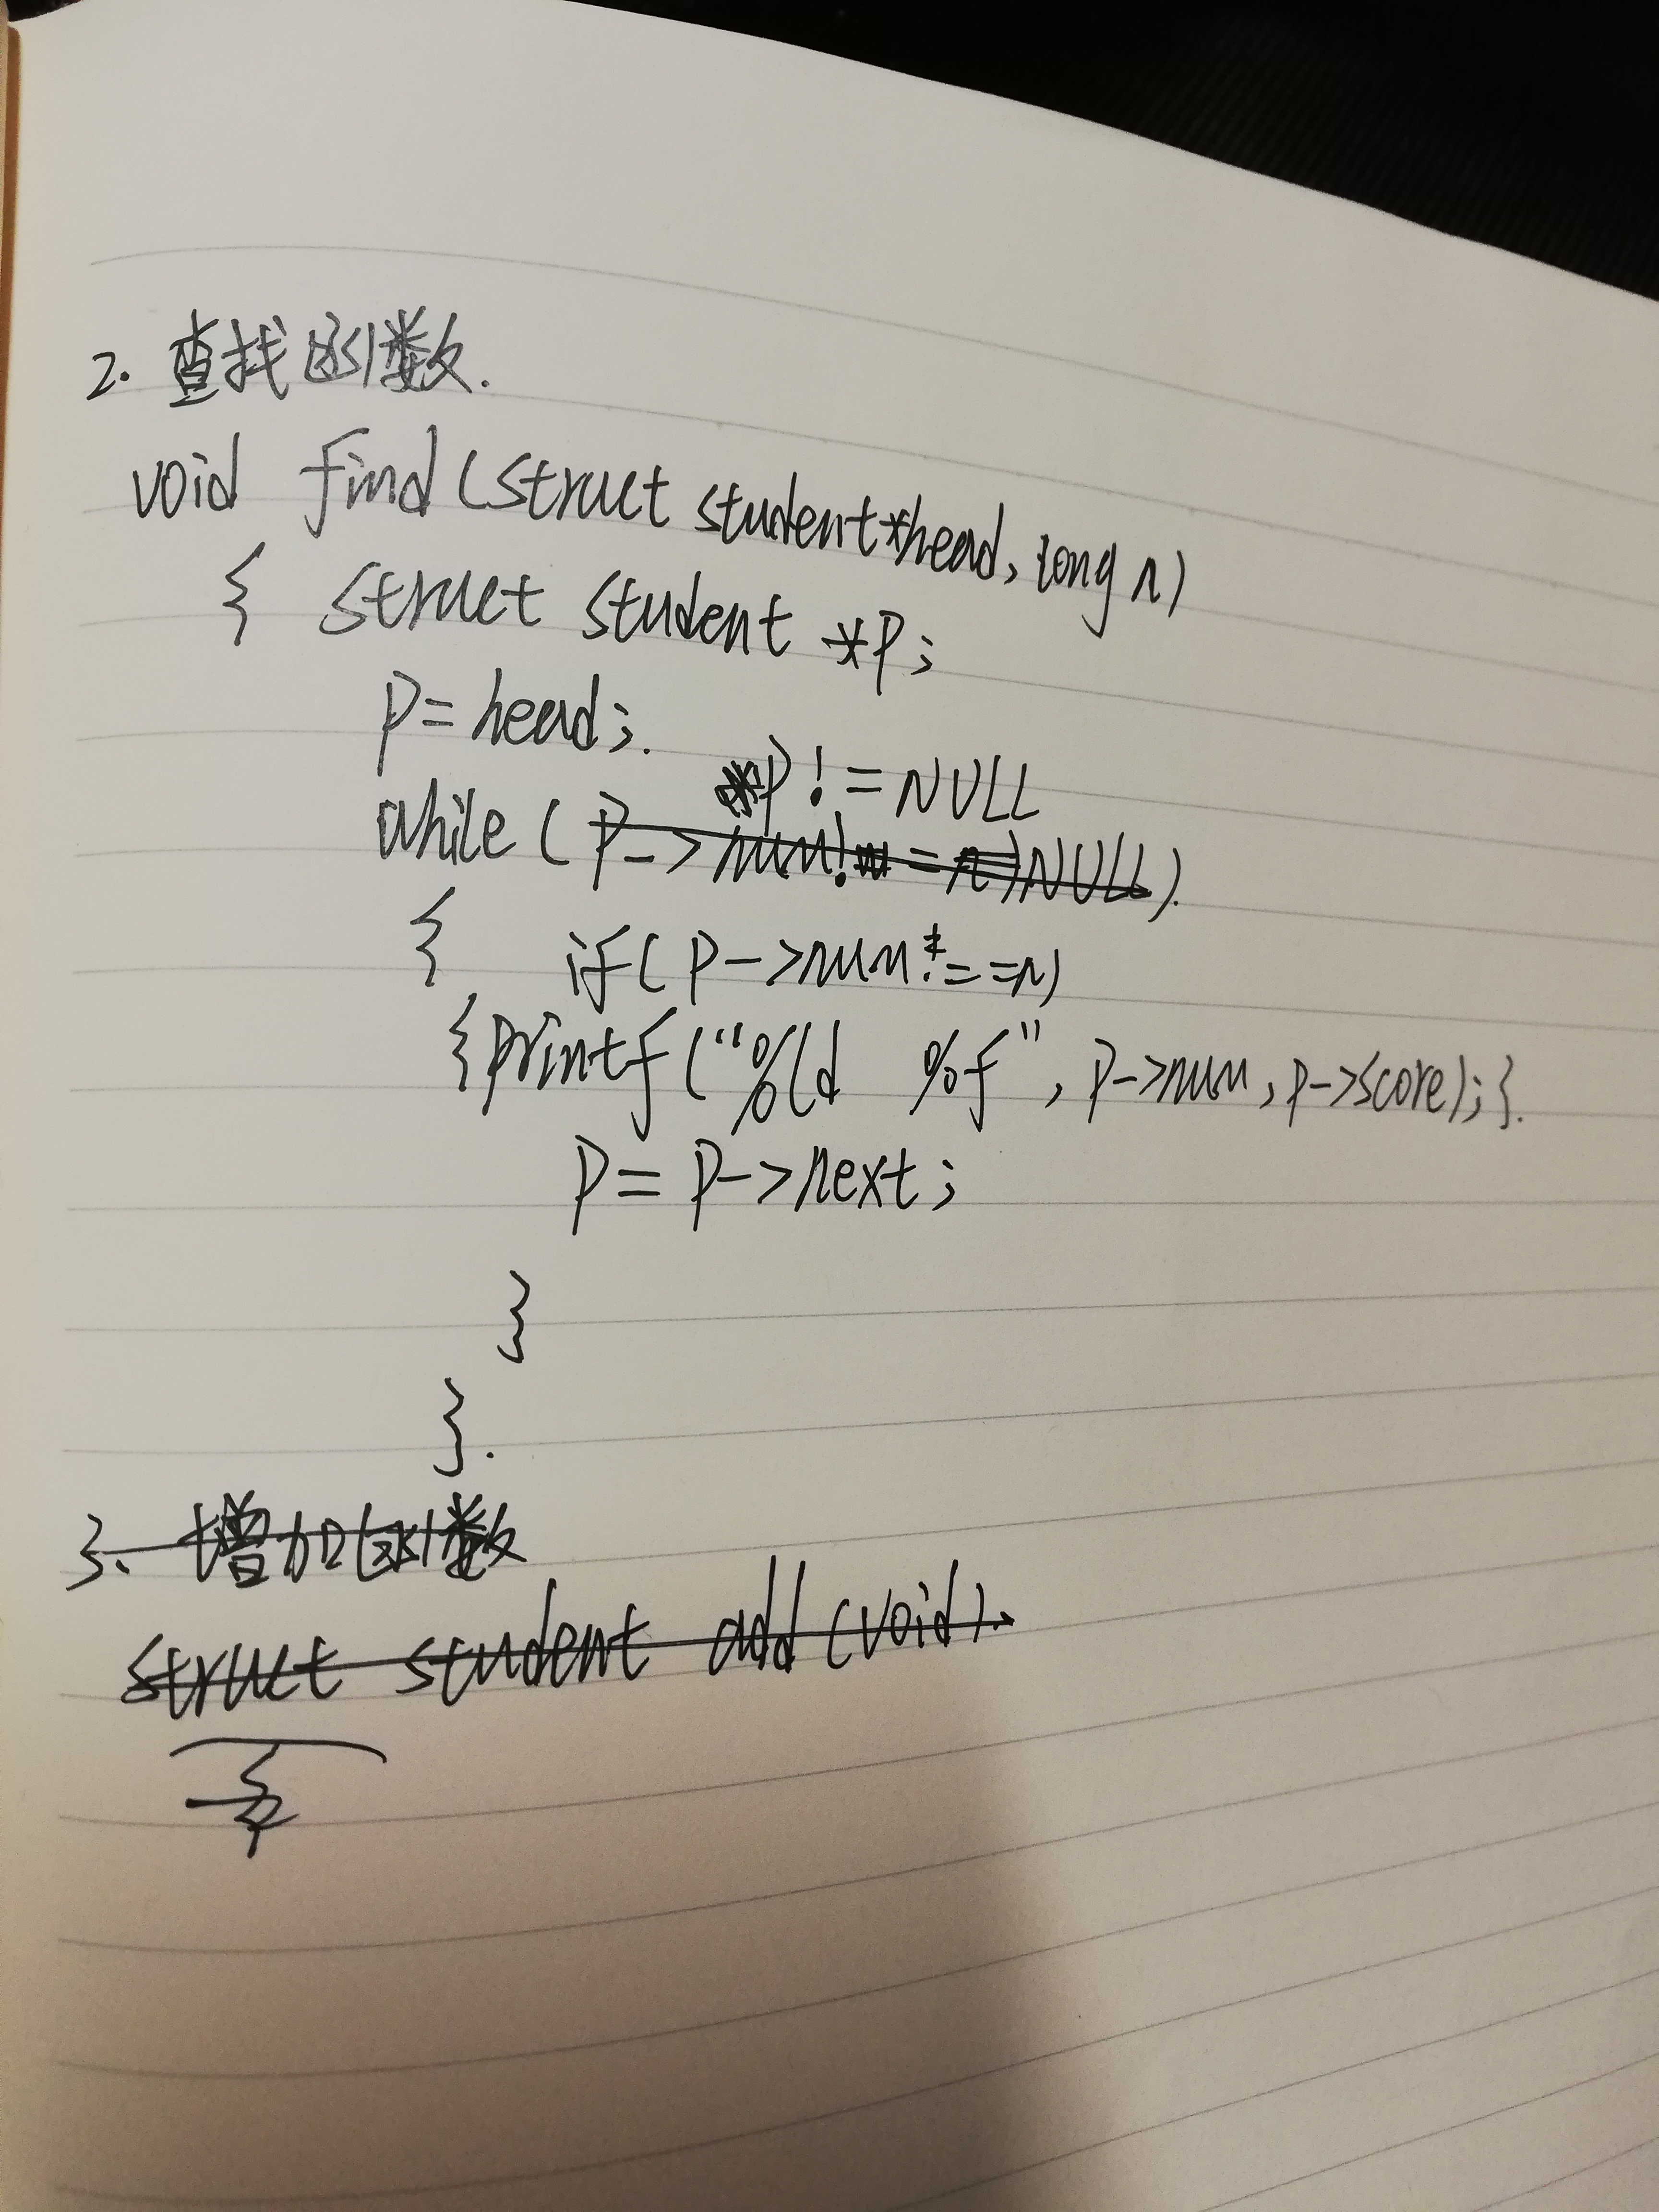 2. 查找函数.
void find(struct student*head, long n)
{ struct student *p;
p=head;.
p!=NULL
while (p->num!=n)NULL).
{ if(p->num!==n)
{printf("%ld %f", p->num, p->score);}.
p=p->next;
}
}.
3、增加函数
struct student add(void).
{